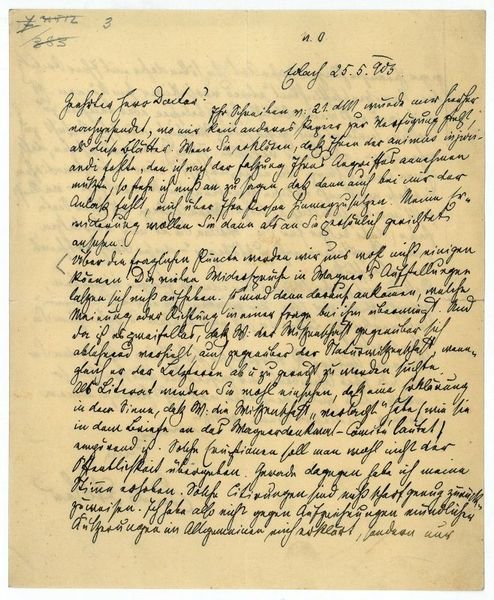 3
385
n. O
Edlach 25.5.903
Geehrter Herr Doctor!
Ihr Schreiben v. 21. d M wurde mir hierher
nachgesendet, wo mir kein anderes Papier zur Verfügung steht
als diese Blätter. Wenn Sie erklären, daß Ihnen der animus injuri-
andi fehlte, den ich nach der Fassung Ihres Angriffes annehmen
mußte, so stehe ich nicht an zu sagen, daß dann auch bei mir der
Anlaß fehlt, mich über Ihre Person hinwegzusetzen. Meine Er-
widerung wollen Sie dann als an Sie persönlich gerichtet
ansehen.
Über die fraglichen Puncte werden wir uns wohl nicht einigen
können. Die vielen Widersprüche in Wagner's Aufstellungen
lassen sich nicht aufheben. Es wird dann darauf ankommen, welche
Meinung oder Richtung in einer Frage bei ihm überwiegt. Und
da ist es zweifellos, daß W. der Wissenschaft gegenüber sich
ablehnend verhielt, auch gegenüber der Naturwissenschaft, wenn-
gleich er der Letzteren ab u zu gerecht zu werden suchte.
Als Literat werden Sie wohl einsehen, daß eine Erklärung
in dem Sinne, daß W. die Wissenschaft „verlacht" habe (wie sie
in dem Briefe an das Wagnerdenkmal-Comité lautet)
empörend ist. Solche Emotionen soll man wohl nicht der
Öffentlichkeit übergeben. Gerade dagegen habe ich meine
Stimme erhoben. Solche Citirungen sind nicht scharf genug zurück-
zuweisen. Ich habe also nicht gegen Aufzeichnungen mündlicher
Äußerungen im Allgemeinen mich erklärt, sondern nur